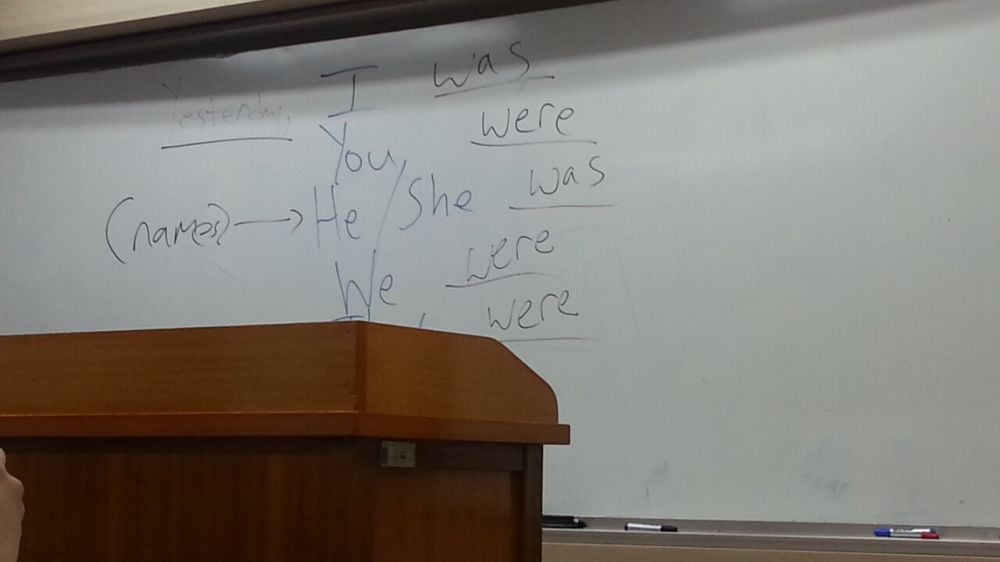 Yesterday, I was
You were
(names) → He/She was
We were
were